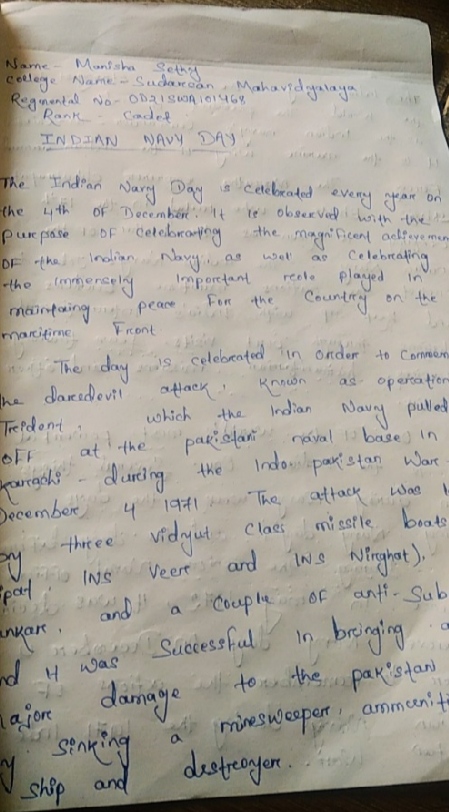 Name- Munisha Sethy
College Name- Sudarsan Mahavidyalaya
Regmental No- OD21SWA101468
Rank- Cadet
INDIAN NAVY DAY
The Indian Navy Day is celebrated every year on
the 4th OF December. It is observed with the
purpose OF celebrating the magnificent achievemen
OF the Indian Navy, as well as Celebrating
the immensely important role played in
maintaing peace For the Country on the
maritime Front
The day is celebrated in order to Commem
the daredevil attack, known as operation
Trident, which the Indian Navy pulled
OFF at the pakistani naval base in
karrachi - during the Indo. pakistan War.
December 4 1971 The attack was
by three vidyut class missile boats
ipat INS Veer and INS Nirghat),
and a couple OF anti-Sub
nd it was Successful in bringing a
ajor damage to the pakistan
y sinking a minesweeper, ammuniti
ship and destroyer.